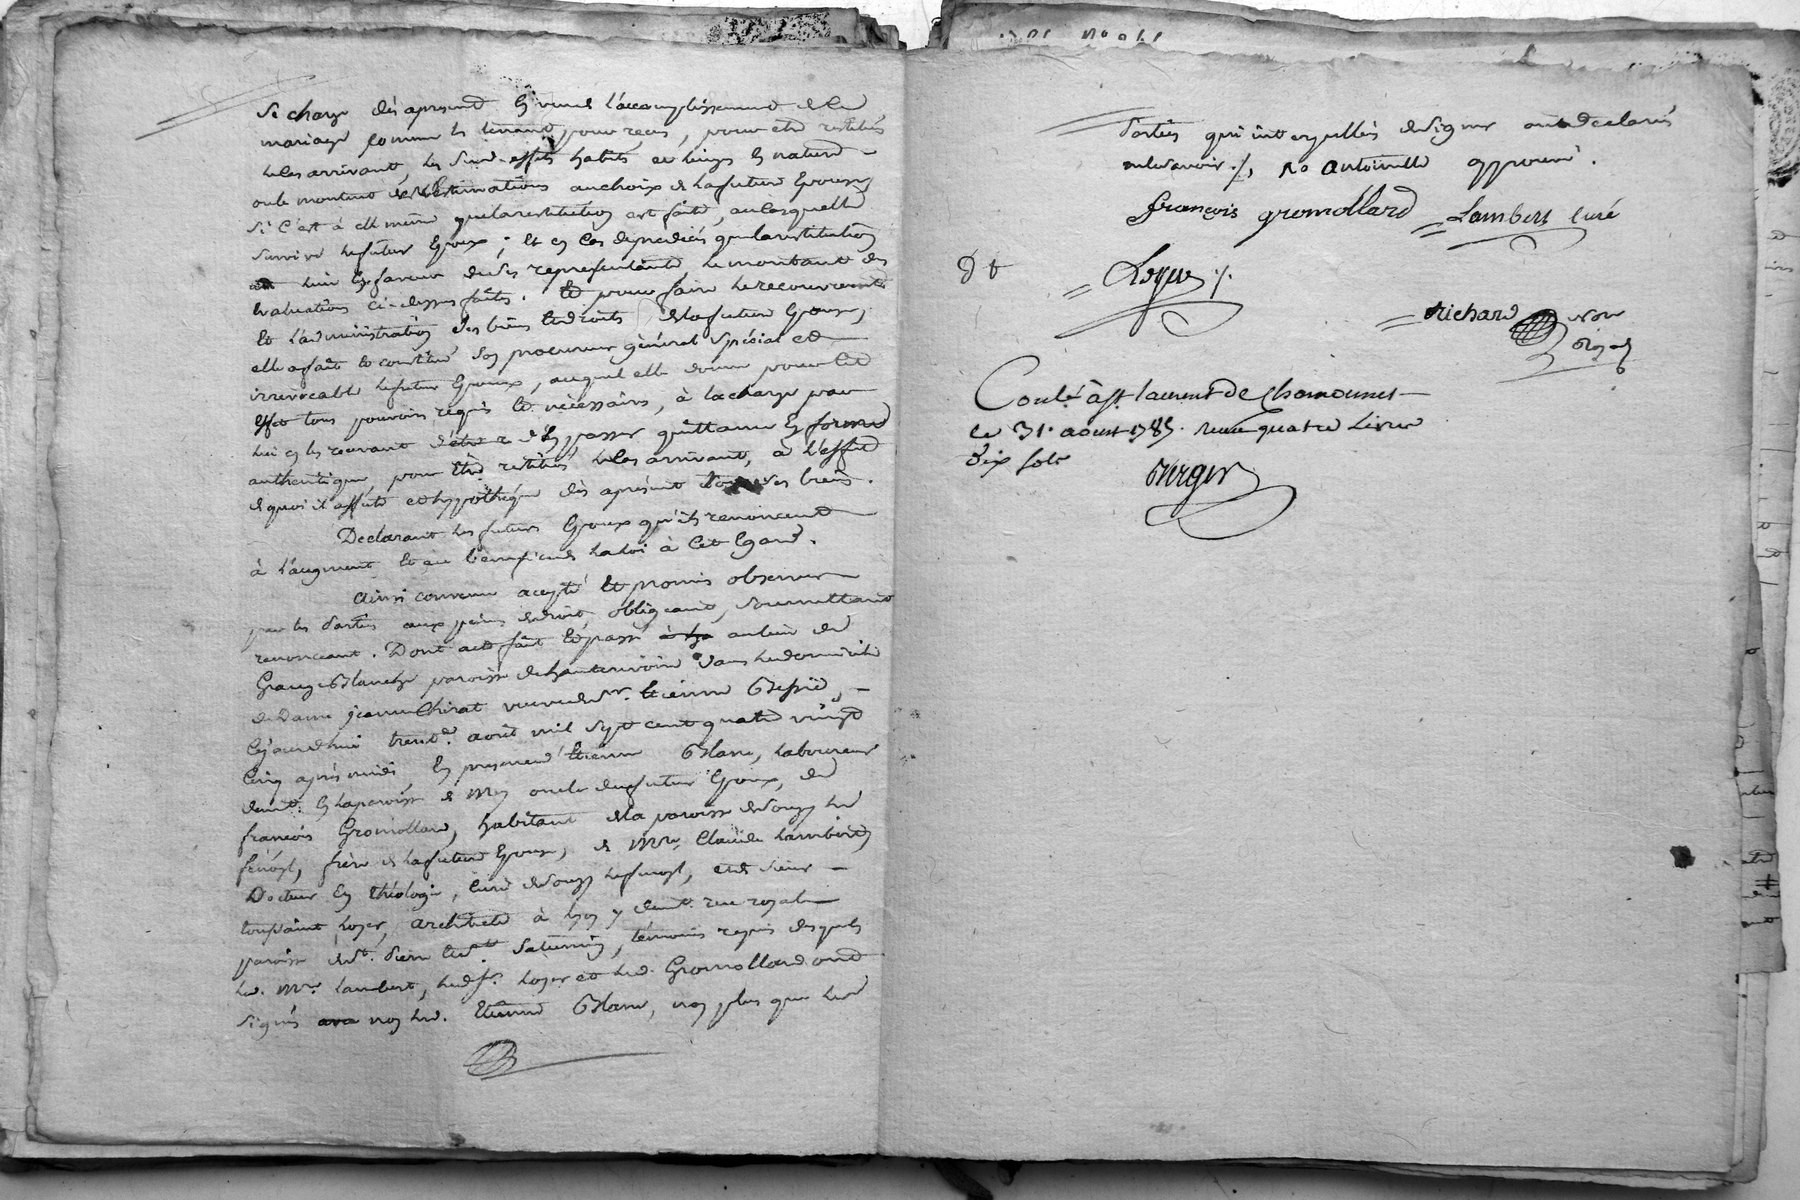 se charge dès apresent En vue de l'accomplissement dud
mariage comme les tenant pour recus, pour etre restitués
le cas arrivant, les susd. effets habits et linges En nature
ou le montant des Estimations au choix de la future Epouse,
si C'est à elle même que la restitution est faite, au cas quelle
survive le futur Epoux ; Et en Cas de predécès que la restitution
lieu En faveur de ses representants, le montant des
Evaluations ci-dessus faites. Et pour faire le recouvrement
Et l'administration des biens Et droits de la future Epouse,
elle a fait et constitué son procureur général spécial et
irrévocable le futur Epoux, auquel elle donne pour cet
effet tous pouvoirs requis Et nécessaires, à la charge par
lui en les recevant d'En passer quittance En forme
authentique, pour Etre restitués le cas arrivant, à l'effet
de quoi il affecte et hypothéque dès apresent tous ses biens.
Declarant les futurs Epoux qu'ils renoncent
à l'augment Et au bénéfice de la loi à Cet Egard.
Ainsi convenu accepté Et promis observer
par les Parties aux peines de droit, obligeant, soumettant
renonceant. Dont acte fait Et passé au lieu de
Grange Blanche paroisse de hauterivoire dans le domicile
de Dame jeanne Chirat veuve de Sr. Etienne
Cejourd'hui trente aoüt mil sept cent quatre vingt
Cinq après midi, En presence d'Etienne Blanc, laboureur
demt. En la paroisse de Mey oncle du futur Epoux, de
françois Gromollard, habitant de la paroisse de Souzy
frère de la future Epouse, de Mre. Claude Lambert,
Docteur En théologie, Curé de Souzy et de sieur
toussaint loyer, architecte à lyon y demt. rue royale
paroisse de St. Pierre Et St. Saturnin, témoins requis desquels
led. Mre. Lambert, led. Sr. loyer et led. Gromollard ont
signés non led. Etienne Blanc, non plus que les
Parties qui interpellées de signer ont declarés
ne le savoir ./. Antoinette approuvé.
françois gromollard Lambert Curé
Loyer ./.
Richard
Contlé. à St. laurent de Chamousset
le 31. aoust 1785. quatre Livres
dix sols